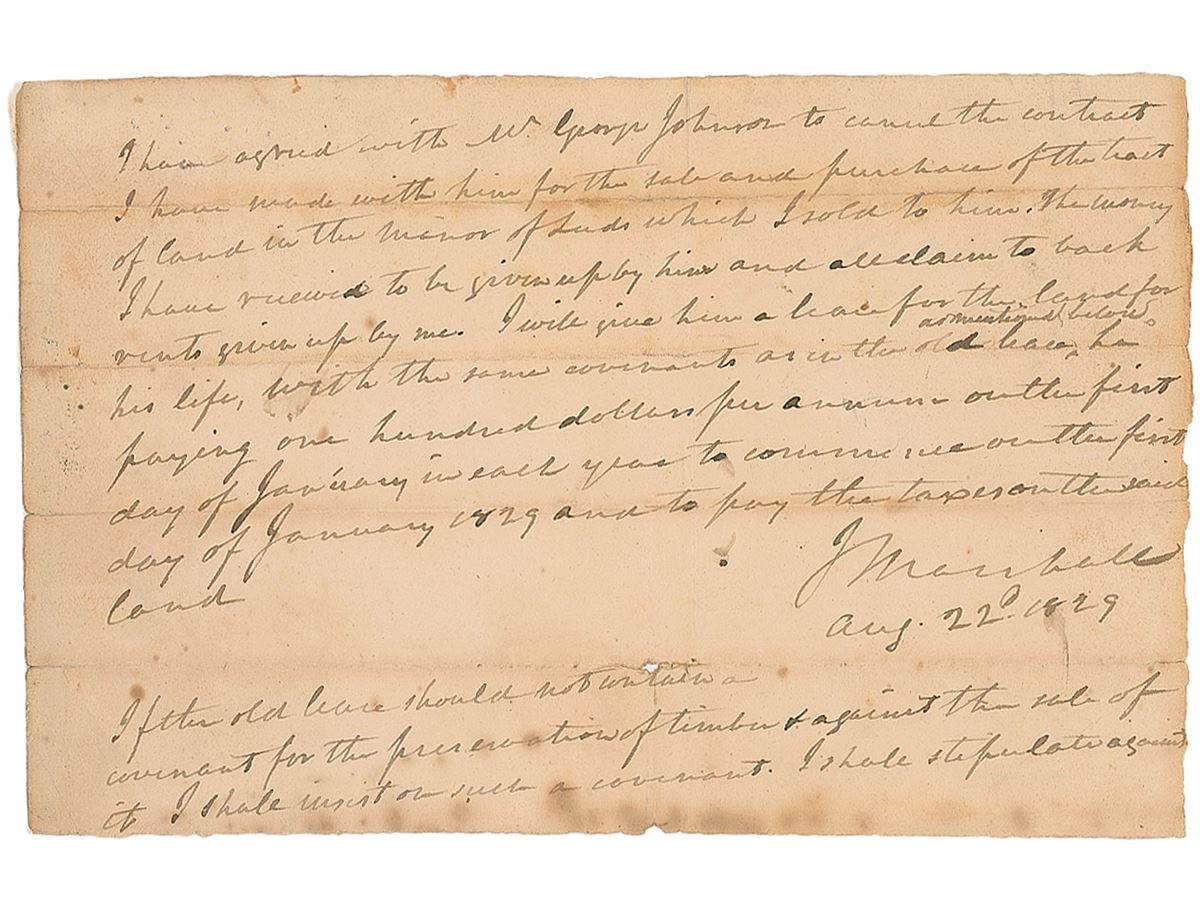 I have agreed with Mr George Johnson to cancel the contract
I have made with him for the sale and purchase of the tract
of land in the Manor of Leeds which I sold to him. The money
I have received to be given up by him and all claim to back
rents given up by me. I will give him a lease for the land for
as mentioned below.
his life, with the same covenants as in the old lease, he
paying one hundred dollars per annum on the first
day of January in each year to commence on the first
day of January 1829 and to pay the taxes on the said
land
J Marshall
Aug. 22d. 1829
If the old lease should not contain a
covenant for the preservation of timber & against the sale of
it I shall insist on such a covenant. I shall stipulate against